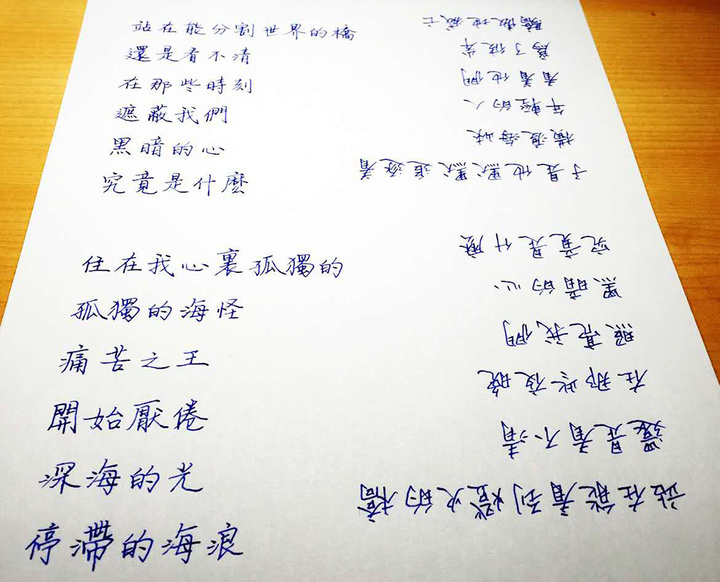 站在能分割世界的橋
還是看不清
在那些時刻
遮蔽我們
黑暗的心
究竟是什麼
住在我心裏孤獨的
孤獨的海怪
痛苦之王
開始厭倦
深海的光
停滯的海浪
站在能看到燈火的橋
還是看不清
在那些夜晚
照亮我們
黑暗的心
究竟是什麼
于是他默默追逐着
橫渡海峽
年輕的人
看着他們
為了彼岸
驕傲地滅亡